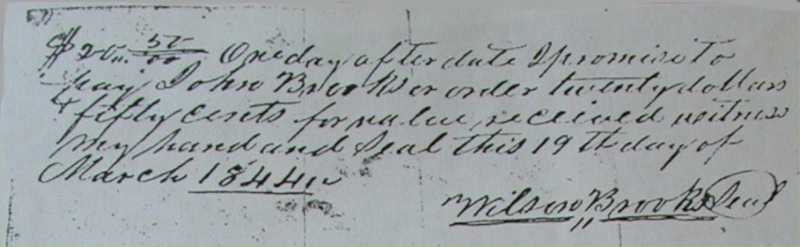 $20.. 50/00 One day after date I promise to
pay John Brooks or order twenty dollars
& fifty cents for value received witness
my hand and Seal this 19th day of
March 1844
Wilson Brooks Seal